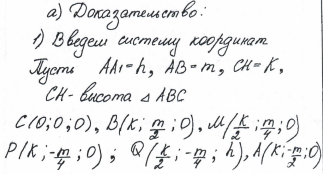 а) Доказательство:
1) Введем систему координат
Пусть AA₁=h, AB=m, CH=K,
CH- высота △ABC
C(0;0;0), B(K; m/2; 0), M(K/2; m/4; 0)
P(K; -m/4; 0); Q(K/2; -m/4; h), A(K; -m/2; 0)